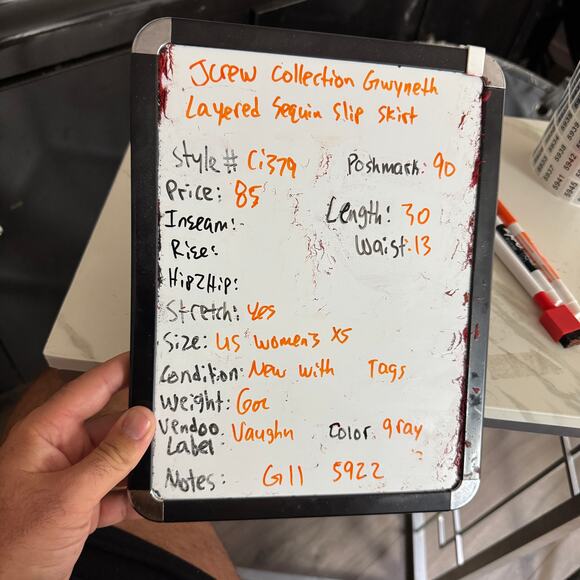 Jcrew Collection Gwyneth
Layered Sequin Slip Skirt
Style # Ci379 Poshmark: 90
Price: 85
Length: 30
Inseam:
Waist: 13
Rise:
Hip2Hip:
Stretch: yes
Size: US Women's XS
Condition: New with Tags
Weight: 6oz
Vendoo Label: Vaughn Color: gray
Notes: G11 5922